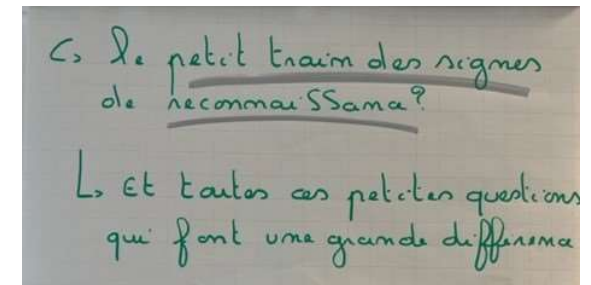 C, Le petit train des signes
de reconnaiSSance?
L, Et toutes ces petites questions
qui font une grande différence